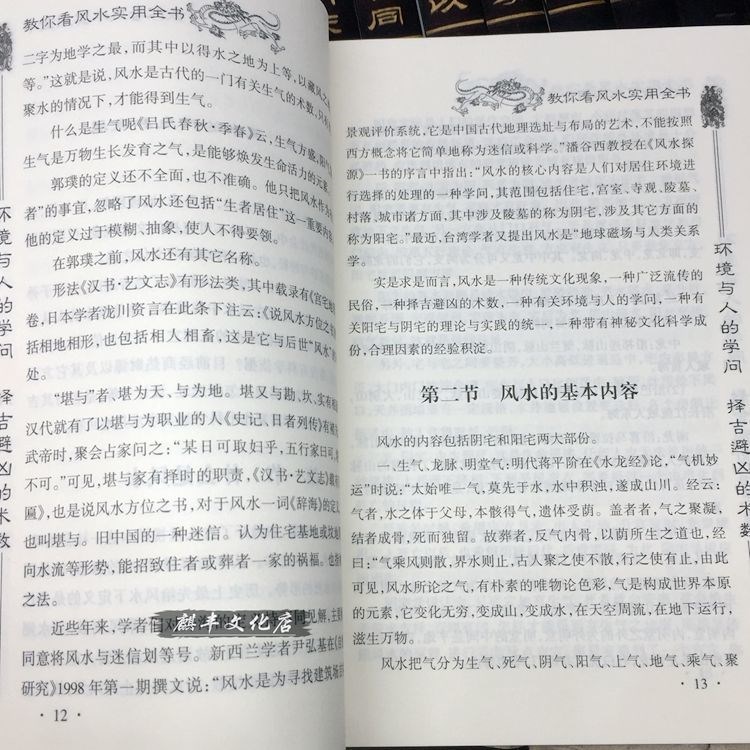 教你看风水实用全书
二字为地学之最,而其中以得水之地为上等,以藏风之
等。”这就是说,风水是古代的一门有关生气的术数,只有
聚水的情况下,才能得到生气。
什么是生气呢《吕氏春秋·季春》云,生气方盛,阳气
生气是万物生长发育之气,是能够焕发生命活力的元素。
郭璞的定义还不全面,也不准确。他只把风水作为
者”的事宜,忽略了风水还包括“生者居住”这一重要内
他的定义过于模糊、抽象,使人不得要领。
在郭璞之前,风水还有其它名称。
形法《汉书·艺文志》有形法类,其中载录有《宫宅地
卷,日本学者泷川资言在此条下注云:《说风水方位之书
括相地相形,也包括相人相畜,这是它与后世“风水”的
处。
“堪与”者,堪为天、与为地。堪又与勘、坎,实有
汉代就有了以堪与为职业的人《史记、日者列传》有
武帝时,聚会占家问之:“某日可取妇乎,五行家曰可,
不可。”可见,堪与家有择时的职责,《汉书·艺文志》
匮》,也是说风水方位之书,对于风水一词《辞海》的定
也叫堪与。旧中国的一种迷信。认为住宅基地或坟地
向水流等形势,能招致住者或葬者一家的祸福。也指
之法。
近些年来,学者们对 同见解,主
同意将风水与迷信划等号。新西兰学者尹弘基在《自
研究》1998年第一期撰文说:“风水是为寻找建筑
·12·
麒丰文化店
环境与人的学问 择吉避凶的术数
教你看风水实用全书
景观评价系统,它是中国古代地理选址与布局的艺术,不能按照
西方概念将它简单地称为迷信或科学。”潘谷西教授在《风水探
源》一书的序言中指出:“风水的核心内容是人们对居住环境进
行选择的处理的一种学问,其范围包括住宅,宫室、寺观、陵墓、
村落、城市诸方面,其中涉及陵墓的称为阴宅,涉及其它方面的
称为阳宅。”最近,台湾学者又提出风水是“地球磁场与人类关系
学。
实是求是而言,风水是一种传统文化现象,一种广泛流传的
民俗,一种择吉避凶的术数,一种有关环境与人的学问,一种有
关阳宅与阴宅的理论与实践的统一,一种带有神秘文化科学成
份,合理因素的经验积淀。
第二节 风水的基本内容
风水的内容包括阴宅和阳宅两大部份。
一、生气、龙脉、明堂气;明代蒋平阶在《水龙经》论,“气机妙
运”时说:“太始唯一气,莫先于水,水中积浊,遂成山川。经云:
气者,水之体于父母,本骸得气,遗体受荫。盖者者,气之聚凝,
结者成骨,死而独留。故葬者,反气内骨,以荫所生之道也,经
曰:“气乘风则散,界水则止,古人聚之使不散,行之使有止,由此
可见,风水所论之气,有朴素的唯物论色彩,气是构成世界本原
的元素,它变化无穷,变成山,变成水,在天空周流,在地下运行,
滋生万物。
风水把气分为生气、死气、阴气、阳气、上气、地气、乘气、聚
·13·
环境与人的学问 择吉避凶的术数